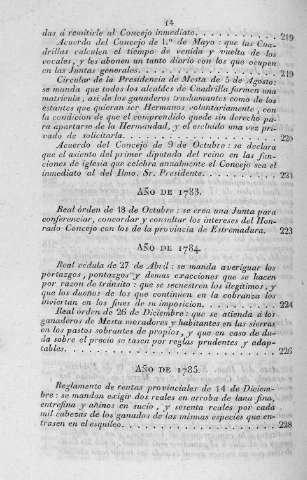 14
das á remitirle al Concejo inmediato. . . . . . . . . . . 219
Acuerdo del Concejo de 1.º de Mayo: que las Cua-
drillas calculen el tiempo de venida y vuelta de los
vocales, y les abonen un tanto diario con los que ocupen
en las Juntas generales. . . . . . . . . . . . . . . . . . 219
Circular de la Presidencia de Mesta de 5 de Agosto:
se manda que todos los alcaldes de Cuadrilla formen una
matricula, asi de los ganaderos trashumantes como de los
estantes que quieran ser Hermanos voluntariamente, con
la condicion de que el comprendido quede sin derecho pa-
ra apartarse de la Hermandad, y el escluido una vez pri-
vado de solicitarla. . . . . . . . . . . . . . . . . . . . 220
Acuerdo del Concejo de 9 de Octubre: se declara
que el asiento del primer diputado del reino en las fun-
ciones de iglesia que celebra anualmente el Concejo sea el
inmediato al del Ilmo. Sr. Presidente. . . . . . . . . . . 221
AÑO DE 1783.
Real órden de 18 de Octubre: se crea una Junta para
conferenciar, concordar y consultar los intereses del Hon-
rado Concejo con los de la provincia de Estremadura. 223
AÑO DE 1784.
Real cédula de 27 de Abril: se manda averiguar los
portazgos, pontazgos y demas exacciones que se hacen
por razon de tránsito: que se secuestren los ilegítimos, y
que los dueños de los que continúen en la cobranza los
inviertan en los fines de su imposicion. . . . . . . . . . 224
Real órden de 26 de Diciembre: que se atienda á los
ganaderos de Mesta moradores y habitantes en las sierras
en los pastos sobrantes de propios, y que en caso de du-
da sobre el precio se tasen por reglas prudentes y adap-
tables. . . . . . . . . . . . . . . . . . . . . . . . . . 226
AÑO DE 1785.
Reglamento de rentas provinciales de 14 de Diciem-
bre: se mandan exigir dos reales en arroba de lana fina,
entrefina y añinos en sucio, y sesenta reales por cada
mil cabezas de los ganados de las mismas especies que en-
trasen en el esquileo. . . . . . . . . . . . . . . . . . . 228